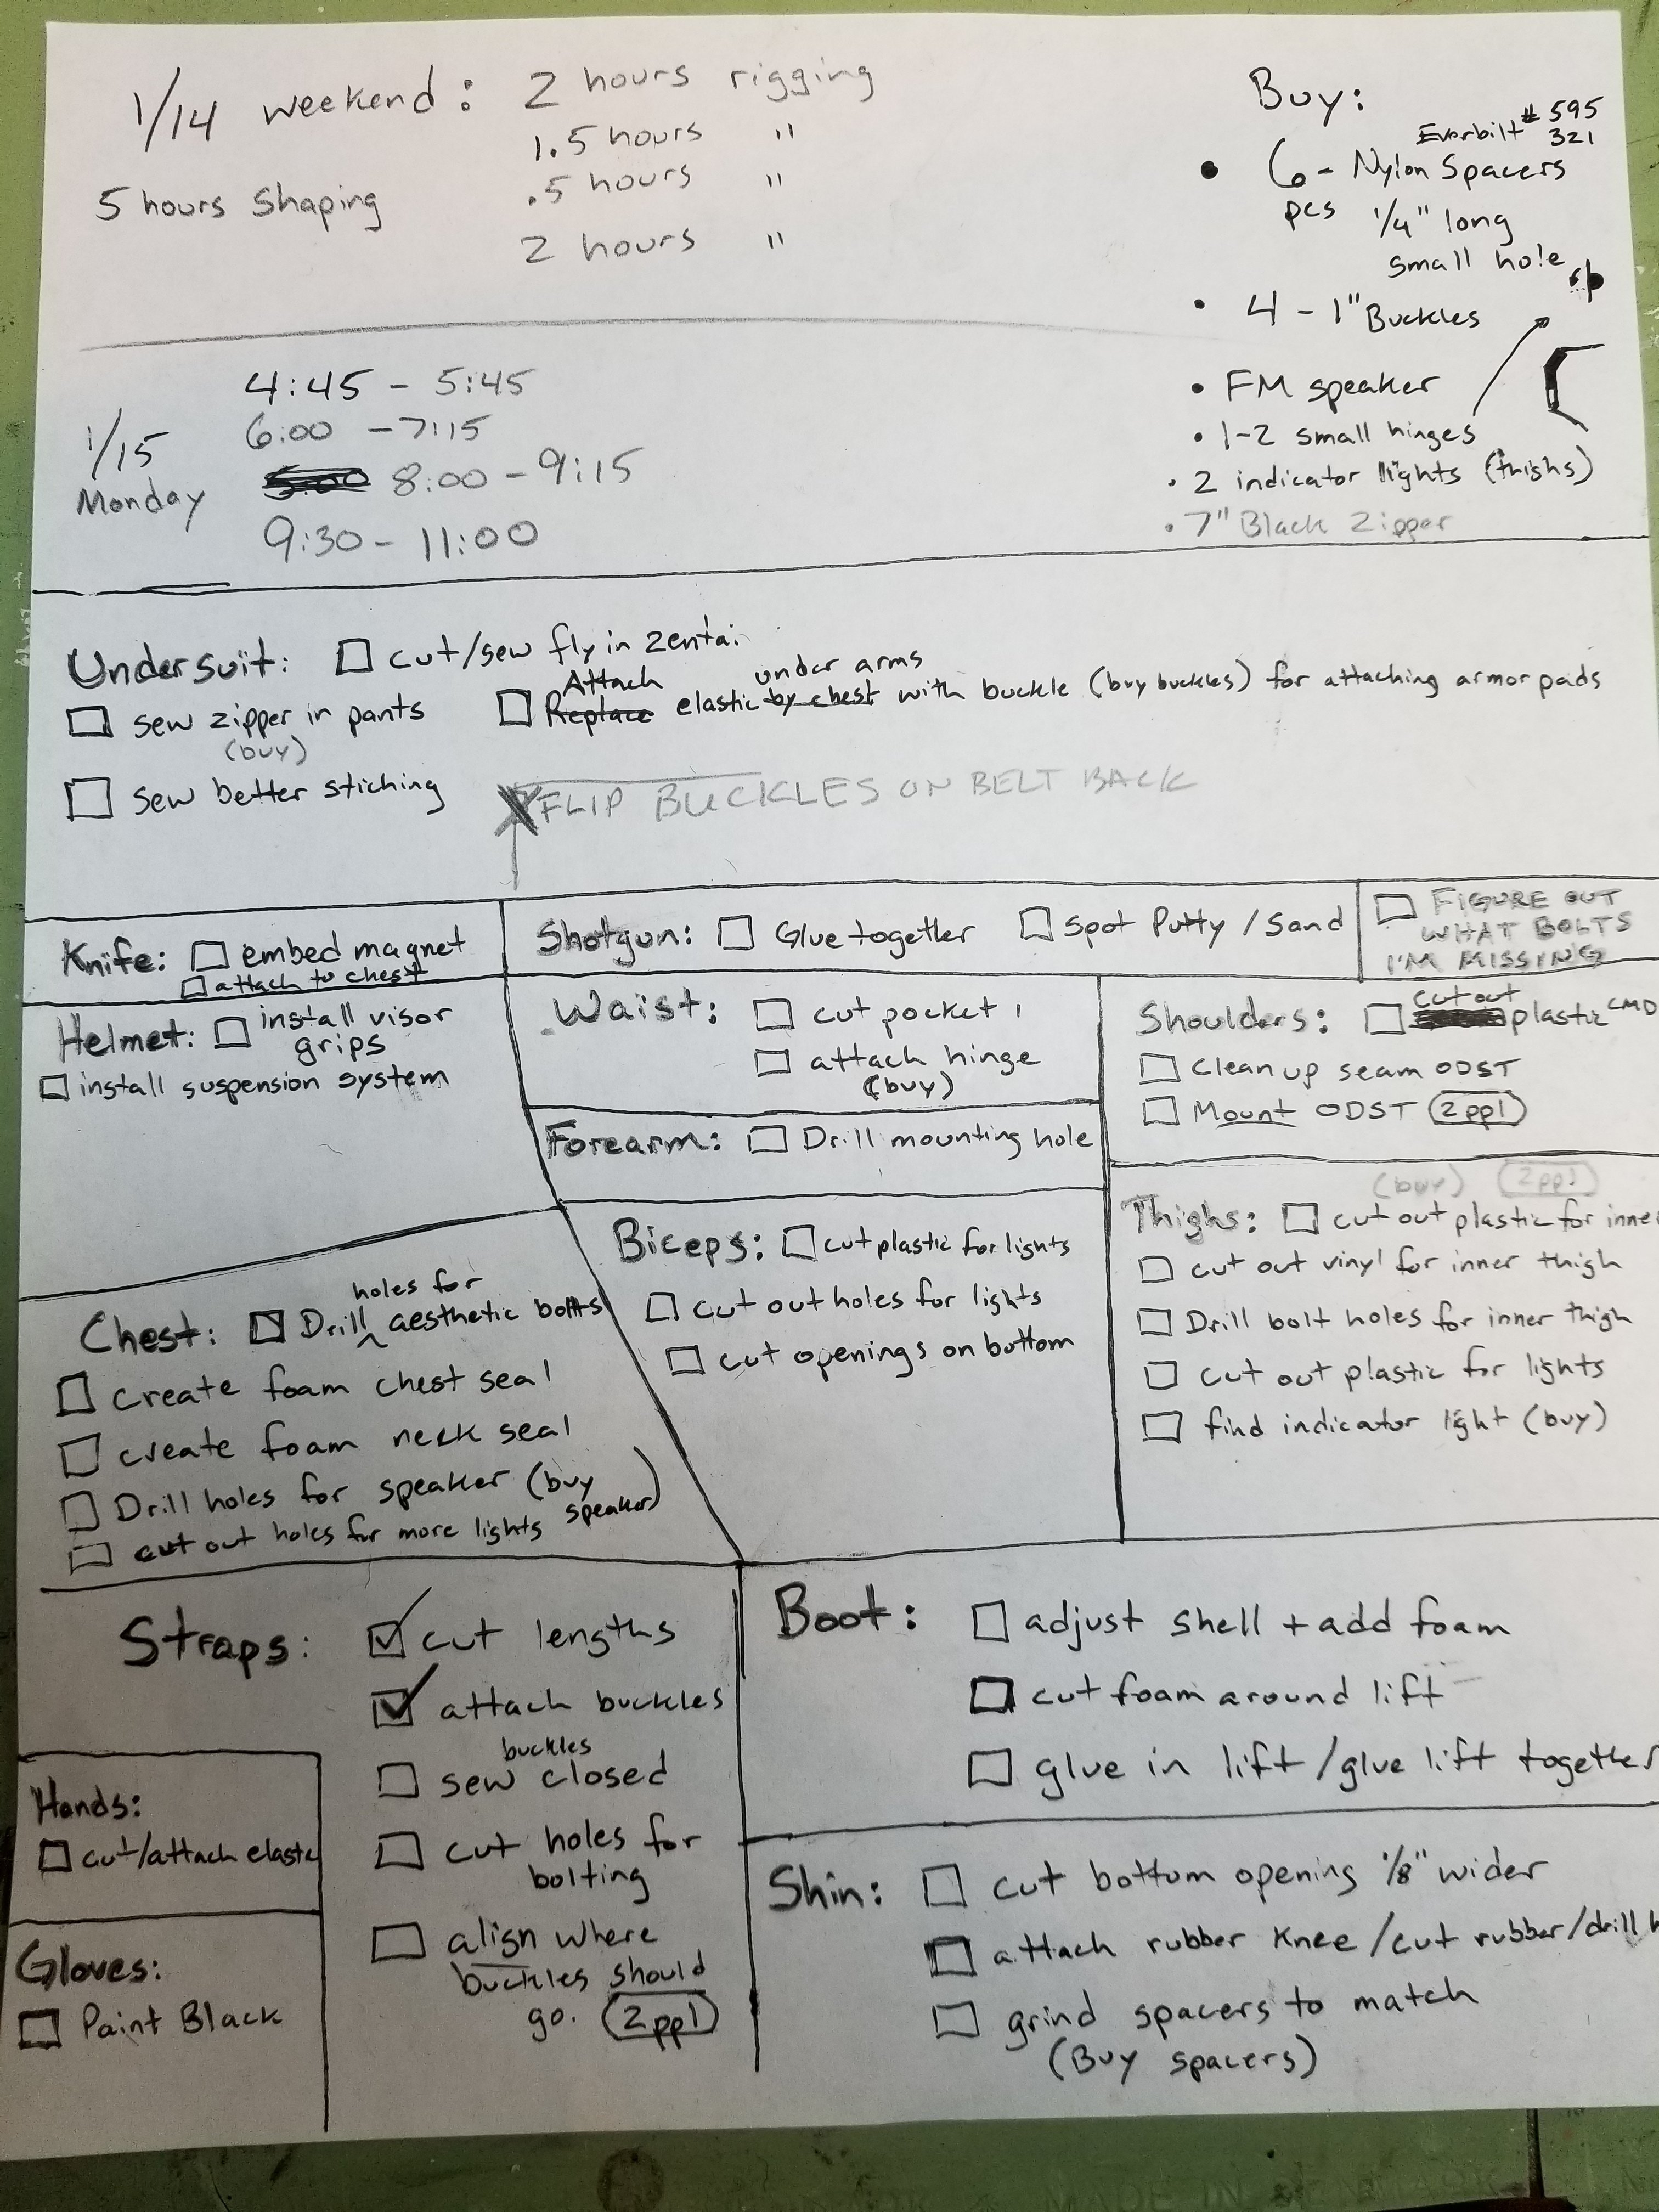 1/14 weekend: 2 hours rigging
1.5 hours "
.5 hours "
2 hours "
5 hours Shaping
Buy:
Everbilt # 595
321
• 6 - Nylon Spacers
pcs 1/4" long
small hole
• 4 - 1" Buckles
• FM speaker
• 1-2 small hinges
• 2 indicator lights (thighs)
• 7" Black Zipper
1/15
Monday
4:45 - 5:45
6:00 - 7:15
5:00 8:00 - 9:15
9:30 - 11:00
Undersuit: cut/sew fly in zentai
sew zipper in pants
(buy)
sew better stiching
Attach under arms
Replace elastic by chest with buckle (buy buckles) for attaching armor pads
FLIP BUCKLES ON BELT BACK
Knife: embed magnet
attach to chest
Shotgun: Glue together Spot Putty / Sand
FIGURE OUT
WHAT BOLTS
I'M MISSING
Helmet: install visor
grips
install suspension system
Waist: cut pocket
attach hinge
(buy)
Shoulders: cut out plastic CMD
Clean up seam ODST
Mount ODST (2ppl)
Forearm: Drill mounting hole
Biceps: cut plastic for lights
cut out holes for lights
cut openings on bottom
(buy) (2ppl)
Thighs: cut out plastic for inner
cut out vinyl for inner thigh
Drill bolt holes for inner thigh
cut out plastic for lights
find indicator light (buy)
holes for
Chest: Drill ^ aesthetic bolts
create foam chest seal
create foam neck seal
Drill holes for speaker (buy
speaker)
cut out holes for more lights
Straps: cut lengths
attach buckles
buckles
sew closed
cut holes for
bolting
align where
buckles should
go. (2ppl)
Boot: adjust shell + add foam
cut foam around lift
glue in lift/glue lift together
Hands:
cut/attach elastic
Gloves:
Paint Black
Shin: cut bottom opening 1/8" wider
attach rubber Knee/cut rubber/drill
grind spacers to match
(Buy spacers)